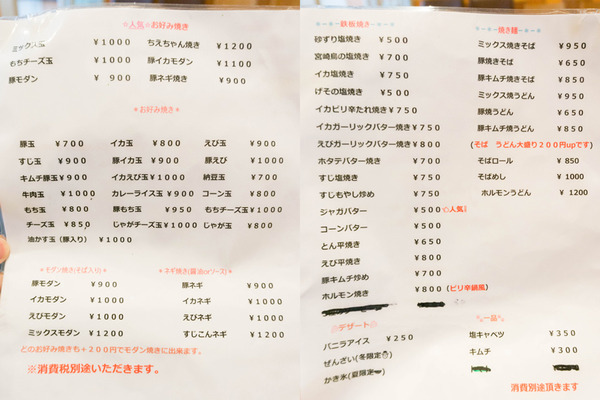 ☆人気☆お好み焼き
ミックス玉 ￥1000
もちチーズ玉 ￥1000
豚モダン ￥ 900
ちえちゃん焼き ￥1200
豚イカモダン ￥1100
豚ネギ焼き ￥900
＊お好み焼き＊
豚玉 ￥700 イカ玉 ￥800 えび玉 ￥900
すじ玉 ￥900 豚イカ玉 ￥900 豚えび ￥1000
キムチ豚玉￥900 イカえび玉￥1000 納豆玉 ￥700
牛肉玉 ￥1000 カレーライス玉￥900 コーン玉 ￥800
もち玉 ￥800 豚もち玉 ￥950 もちチーズ玉￥1000
チーズ玉 ￥850 じゃがチーズ玉￥1000 じゃが玉 ￥800
油かす玉（豚入り） ￥1000
＊モダン焼き(そば入り)＊
豚モダン ￥900
イカモダン ￥1000
えびモダン ￥1000
ミックスモダン ￥1200
＊ネギ焼き(醤油orソース)＊
豚ネギ ￥900
イカネギ ￥1000
えびネギ ￥1000
すじこんネギ ￥1200
どのお好み焼きも＋２００円でモダン焼きに出来ます。
※消費税別途いただきます。
鉄板焼き
砂ずり塩焼き ￥500
宮崎鳥の塩焼き ￥700
イカ塩焼き ￥750
げその塩焼き ￥500
イカピリ辛たれ焼き￥750
イカガーリックバター焼き￥750
えびガーリックバター焼き￥800
ホタテバター焼き ￥700
すじ塩焼き ￥750
すじもやし炒め ￥750
ジャガバター ￥500☆人気！
コーンバター ￥500
とん平焼き ￥650
えび平焼き ￥800
豚キムチ炒め ￥700
ホルモン焼き ￥800(ピリ辛鍋風)
デザート
バニラアイス ￥250
ぜんざい(冬限定)
かき氷(夏限定)
焼き麺
ミックス焼きそば ￥950
豚焼きそば ￥650
豚キムチ焼きそば ￥850
ミックス焼うどん ￥950
豚焼うどん ￥650
豚キムチ焼うどん ￥850
(そば うどん大盛り２００円upです)
そばロール ￥850
そばめし ￥1000
ホルモンうどん ￥1200
一品
塩キャベツ ￥350
キムチ ￥300
消費税別途頂きます